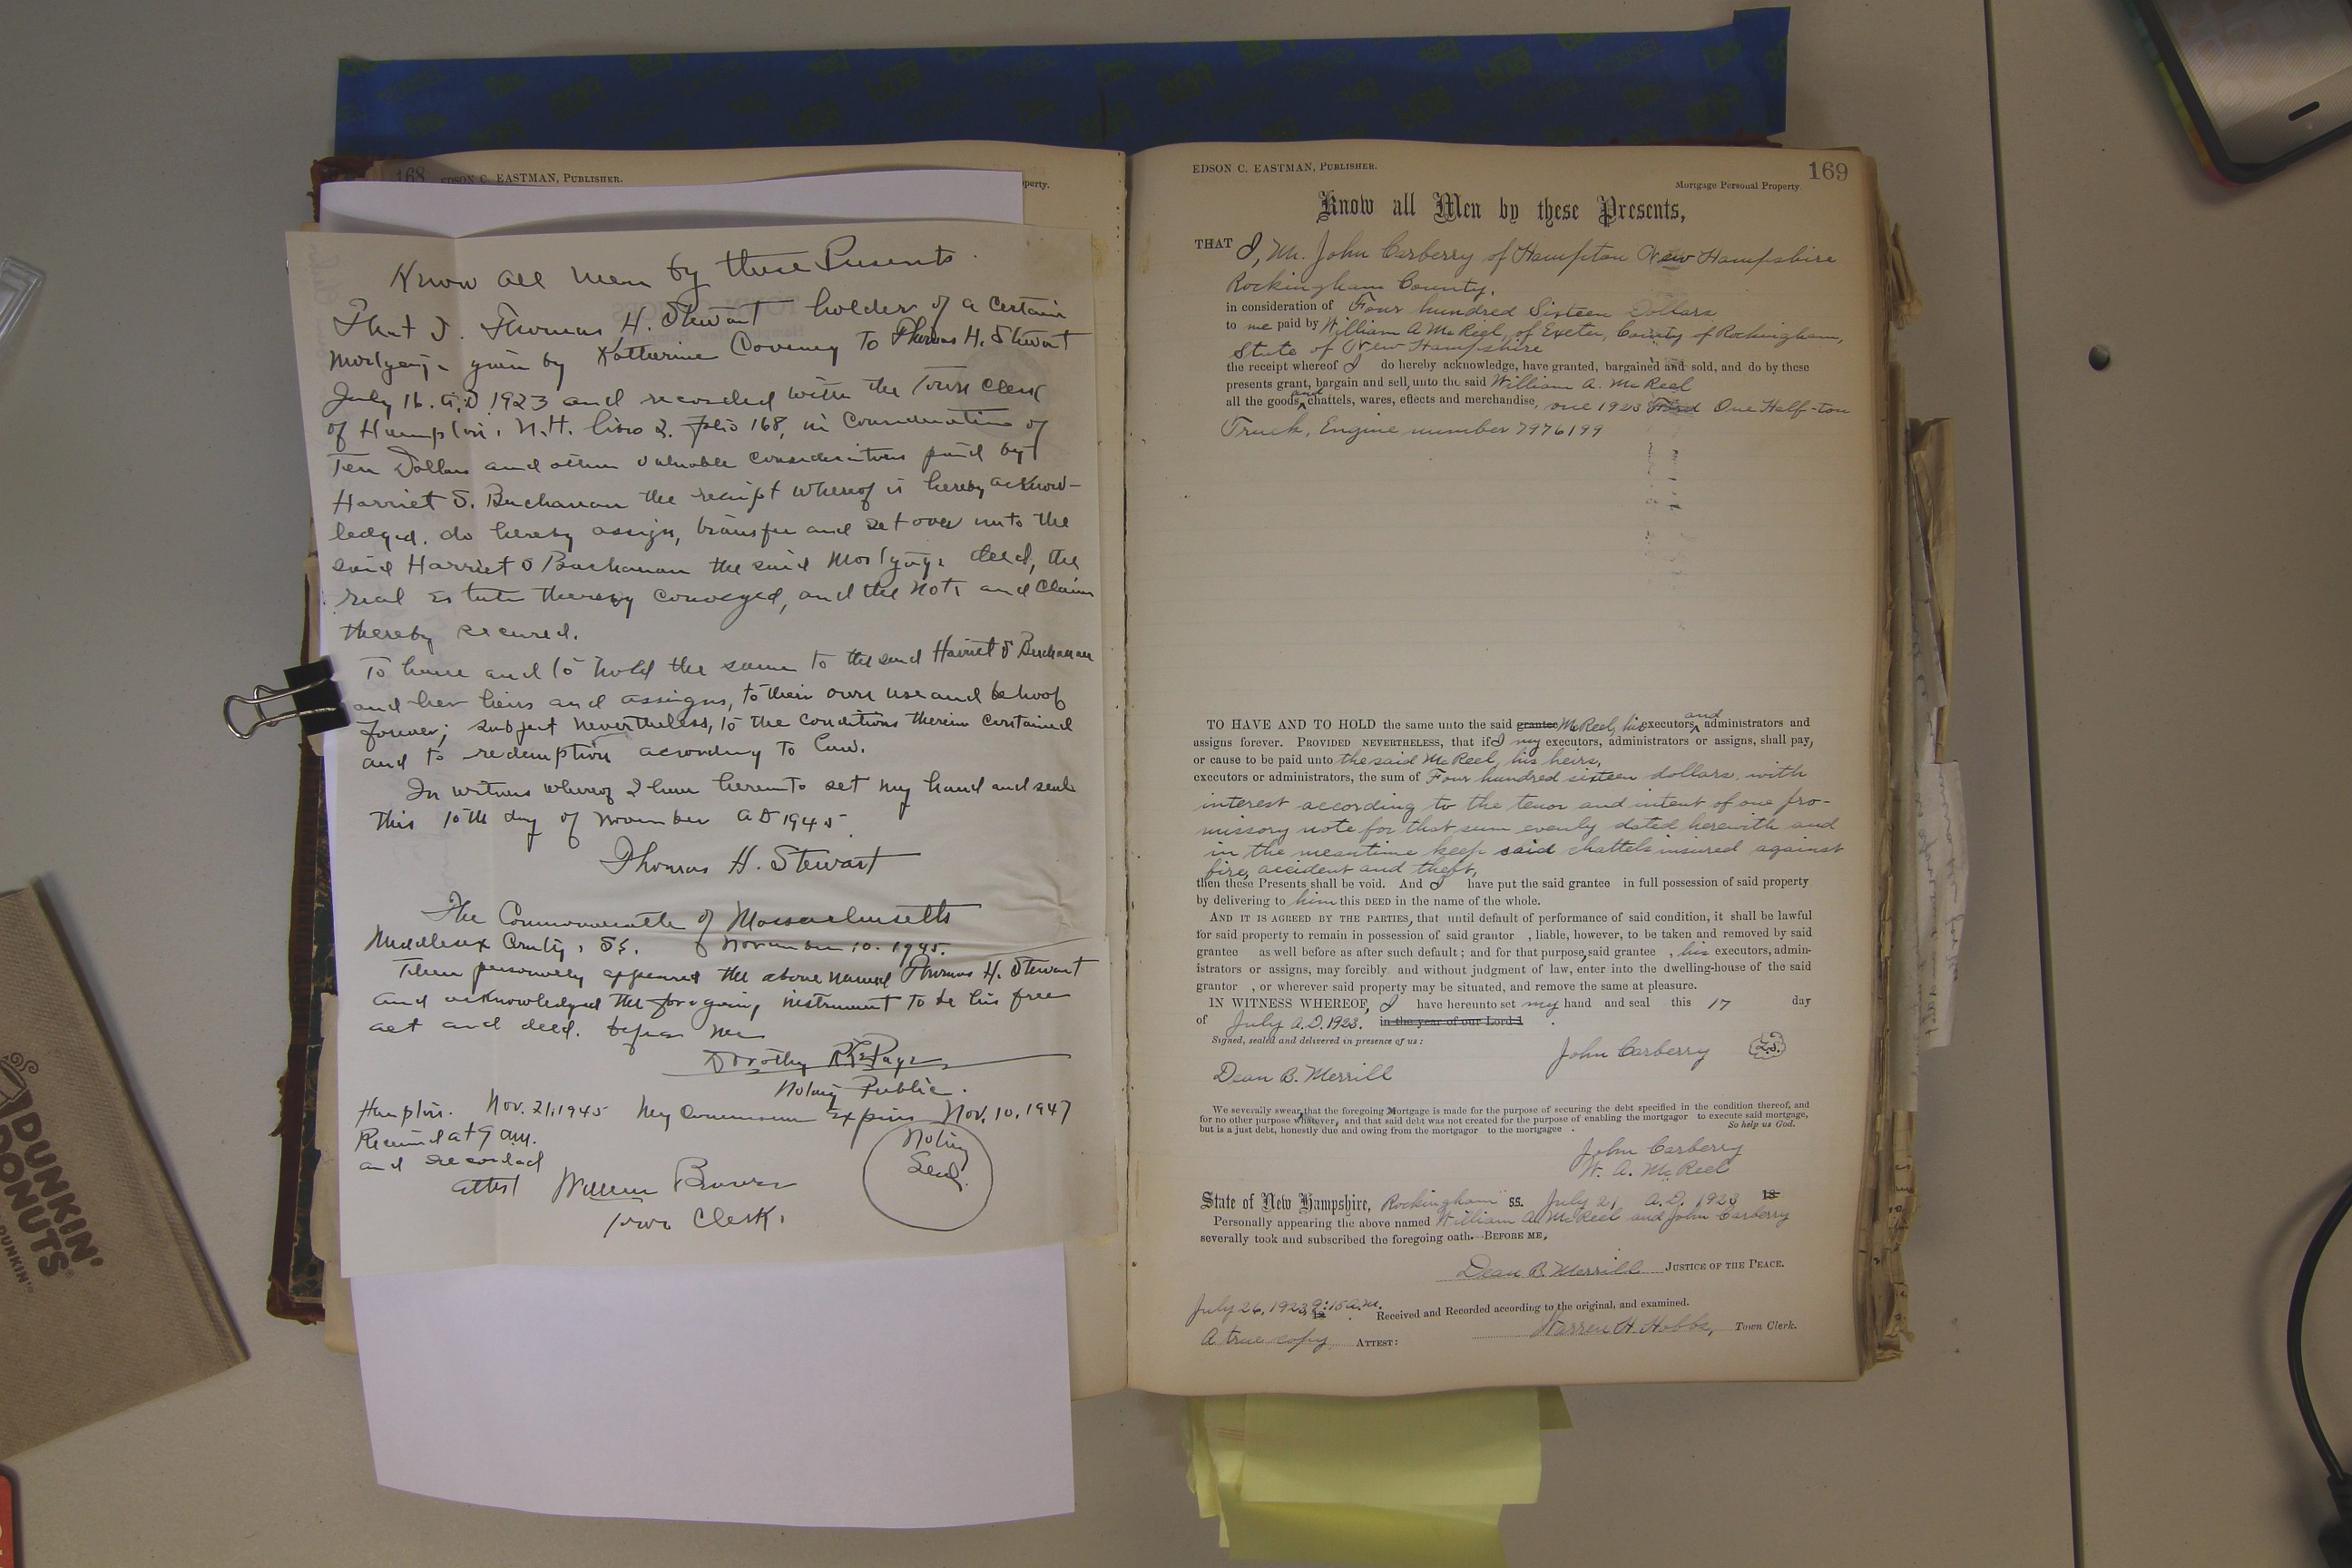 168 EDSON C. EASTMAN, PUBLISHER.
perty.
Know all men by these Presents.
That I. Thomas H. Stewart holder of a certain
mortgage given by Katherine Coveney to Thomas H. Stewart
July 16. A.D. 1923 and recorded with the Town Clerk
of Hampton, N.H. libro 2. folio 168, in consideration of
Ten Dollars and other valuable considerations paid by
Harriet S. Buchanan the receipt whereof is hereby acknow-
ledged, do hereby assign, transfer and set over unto the
said Harriet S Buchanan the said Mortgage deed, the
real estate thereby conveyed, and the Note and Claim
thereby secured.
To have and to hold the same to the said Harriet S Buchanan
and her heirs and assigns, to their own use and behoof
forever; subject nevertheless, to the conditions therein contained
and to redemption according to law.
In witness whereof I have hereunto set my hand and seal
this 10th day of November AD 1945.
Thomas H. Stewart
The Commonwealth of Massachusetts
Middlesex County, SS. November 10. 1945.
Then personally appeared the above named Thomas H. Stewart
and acknowledged the foregoing instrument to be his free
act and deed. before me
Dorothy R. LePage
Notary Public.
Hampton. Nov. 21, 1945 My Commission Expires Nov. 10, 1947
Received at 9 am.
and recorded
Attest William Brown
Town Clerk.
Notary
Seal.
EDSON C. EASTMAN, PUBLISHER.
169
Mortgage Personal Property.
Know all Men by these Presents,
THAT I, Mr. John Carberry of Hampton New Hampshire
Rockingham County.
in consideration of Four hundred Sixteen Dollars
to me paid by William A McReel, of Exeter, County of Rockingham,
State of New Hampshire
the receipt whereof I do hereby acknowledge, have granted, bargained and sold, and do by these
presents grant, bargain and sell, unto the said William A. McReel
all the goods and chattels, wares, effects and merchandise, one 1923 Ford One Half-ton
Truck, Engine number 7976199
TO HAVE AND TO HOLD the same unto the said grantee McReel, his executors and administrators and
assigns forever. PROVIDED NEVERTHELESS, that if I my executors, administrators or assigns, shall pay,
or cause to be paid unto the said McReel, his heirs,
executors or administrators, the sum of Four hundred sixteen dollars, with
interest according to the tenor and intent of one pro-
missory note for that sum evenly dated herewith and
in the meantime keep said chattels insured against
fire, accident and theft,
then these Presents shall be void. And I have put the said grantee in full possession of said property
by delivering to him this DEED in the name of the whole.
AND IT IS AGREED BY THE PARTIES, that until default of performance of said condition, it shall be lawful
for said property to remain in possession of said grantor , liable, however, to be taken and removed by said
grantee as well before as after such default ; and for that purpose, said grantee , his executors, admin-
istrators or assigns, may forcibly and without judgment of law, enter into the dwelling-house of the said
grantor , or wherever said property may be situated, and remove the same at pleasure.
IN WITNESS WHEREOF, I have hereunto set my hand and seal this 17 day
of July A.D. 1923. in the year of our Lord 1 .
Signed, sealed and delivered in presence of us :
John Carberry L.S.
Dean B. Merrill
We severally swear, that the foregoing Mortgage is made for the purpose of securing the debt specified in the condition thereof, and
for no other purpose whatever, and that said debt was not created for the purpose of enabling the mortgagor to execute said mortgage,
but is a just debt, honestly due and owing from the mortgagor to the mortgagee . So help us God.
John Carberry
W. A. McReel
State of New Hampshire, Rockingham ss. July 21, A.D. 1923 18
Personally appearing the above named William A. McReel and John Carberry
severally took and subscribed the foregoing oath.—BEFORE ME,
Dean B. Merrill JUSTICE OF THE PEACE.
July 26, 1923, 9:15 a.m. 18 . Received and Recorded according to the original, and examined.
A true copy, ATTEST: Warren H. Hobbs, Town Clerk.
DUNKIN'
DONUTS
DUNKIN'